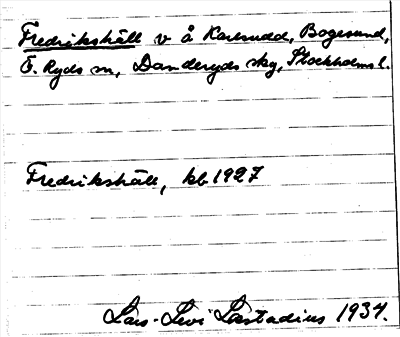 Fredrikshäll v å Karlsudd, Bogesund,
Ö. Ryds sn, Danderyds skg, Stockholms l.
Fredrikshäll, kb 1927
Lars-Levi Læstadius 1934.